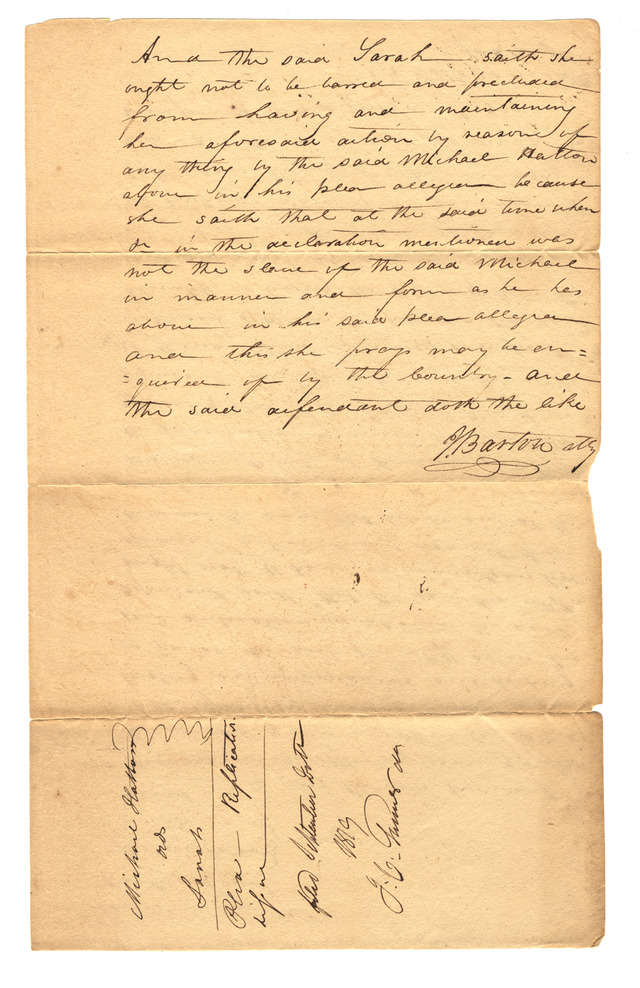 And the said Sarah saith she
ought not to be barred and precluded
from having and maintaining
her aforesaid action by reason of
any thing by the said Michael Hatton
above in his plea alleged because
she saith that at the said time when
&c in the declaration mentioned was
not the slave of the said Michael
in manner and form as he has
above in his said plea alleged
and this she prays may be en=
=quired of by the Country - and
the said defendant doth the like
J. Barton atty
Michael Hatton
ads
Sarah
Plea — Replication
filed September
1819